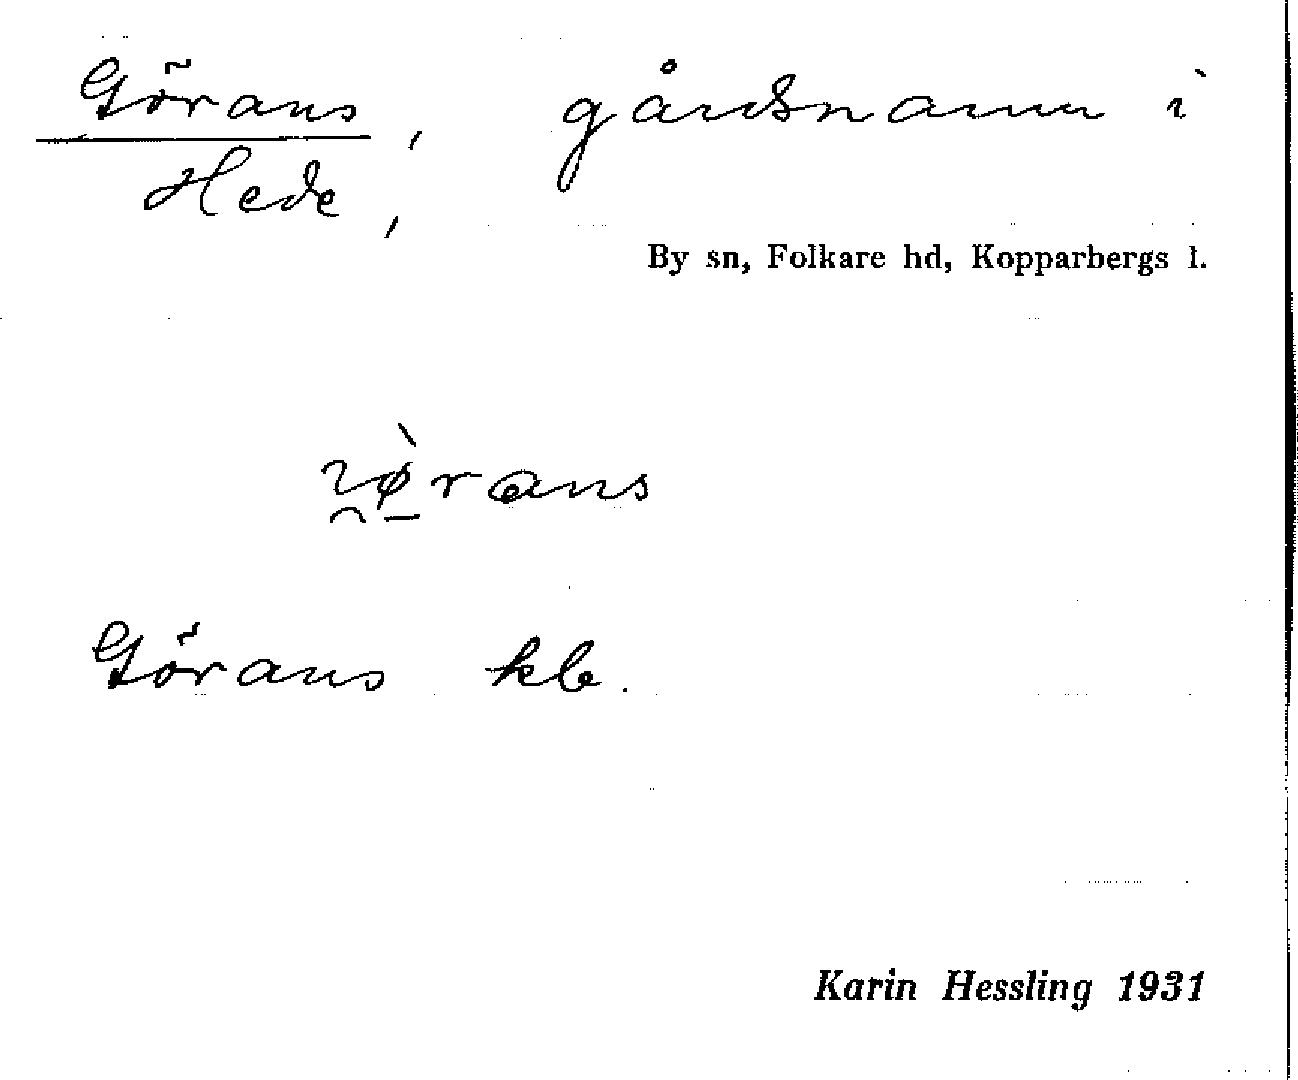 Görans, gårdsnamn i
Hede,
By sn, Folkare hd, Kopparbergs l.
Görans kb.
Karin Hessling 1931